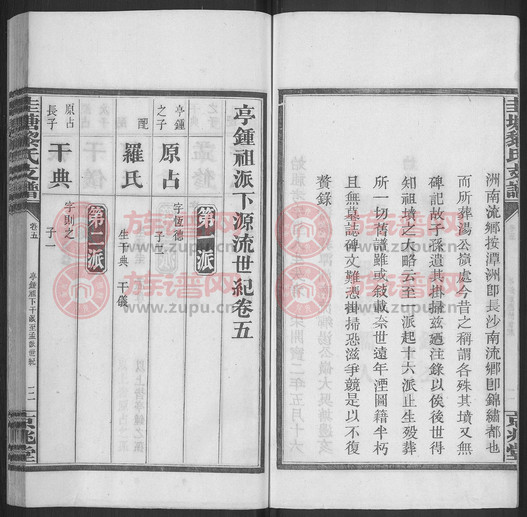 洲南流鄉按潭洲卽長沙南流鄉卽錦繡都也
而所葬湯公嶺處今昔之稱謂各殊其墳又無
碑記故子孫遺其掛掃茲廼注錄以俟後世得
知祖墳之大略云至一派起十六派止生殁葬
所一切舊譜雖或敍載奈世遠年湮圖籍半朽
且無墓誌碑文難憑掛掃恐滋爭競兹不復
贅錄
亭鍾祖派下源流世紀卷五
第一派
亭鍾之子
原占
字恆德
子二
配
羅氏
生干典 干儀
第二派
原占長子
干典
字則之
子一
圭塘黎氏支譜
卷五
亭鍾祖下干派至孟派世紀
京兆堂
族谱网
www.zupu.cn